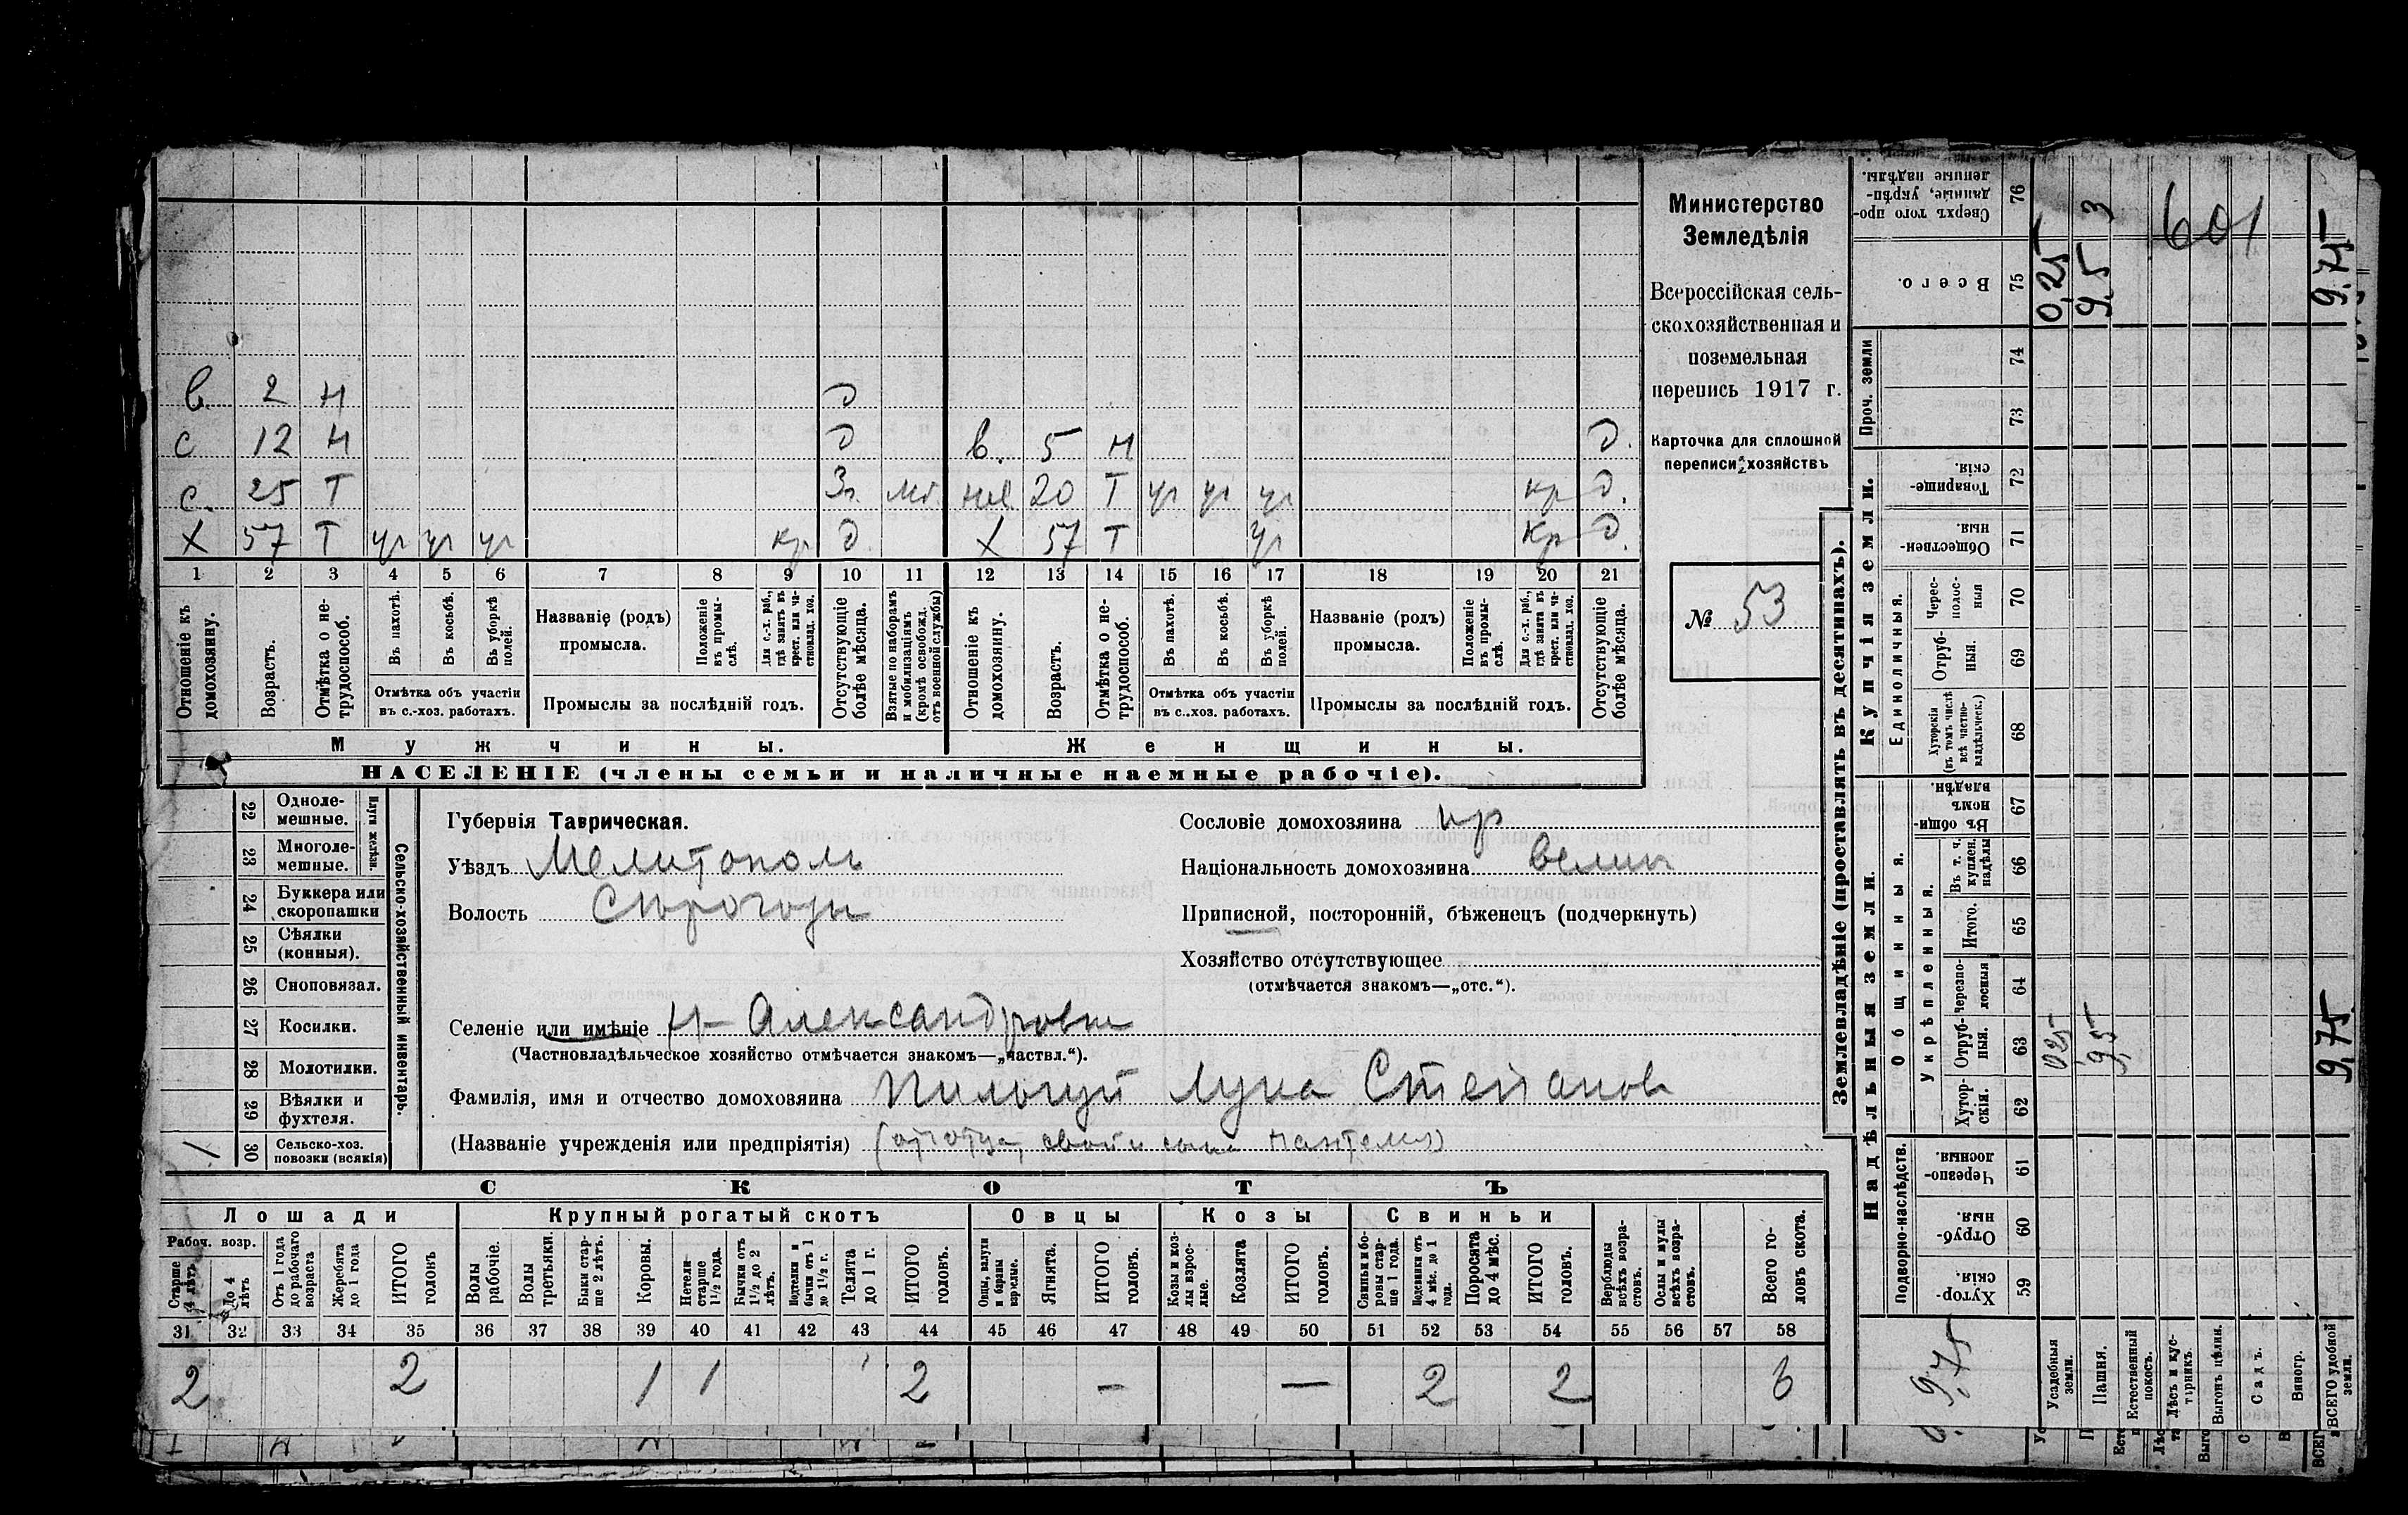 Министерство
Земледѣлія
Всероссійская сель-
скохозяйственная и
поземельная
перепись 1917 г.
Карточка для сплошной
переписи хозяйствъ
№ 53
в. 2 н д
с 12 н д в. 5 н д.
с. 25 т 20 т уч уч уч кр д.
х 57 т уч уч уч кр д. х 57 т уч кр д.
1 2 3 4 5 6 7 8 9 10 11 12 13 14 15 16 17 18 19 20 21
Отношеніе къ домохозяину.
Возрастъ.
Отмѣтка о не-трудоспособ.
Въ пахотѣ.
Въ косьбѣ.
Въ уборкѣ полей.
Отмѣтка объ участіи
въ с.-хоз. работахъ.
Названіе (родъ)
промысла.
Положеніе въ промы-слѣ.
Для с.-х. раб., гдѣ занятъ въ крест. или ча-стновлад. хоз.
Промыслы за послѣдній годъ.
Отсутствующіе болѣе мѣсяца.
Взятые по наборамъ и мобилизаціямъ (кромѣ освобожд. отъ военной службы)
Отношеніе къ домохозяину.
Возрастъ.
Отмѣтка о не-трудоспособ.
Въ пахотѣ.
Въ косьбѣ.
Въ уборкѣ полей.
Отмѣтка объ участіи
въ с.-хоз. работахъ.
Названіе (родъ)
промысла.
Положеніе въ промы-слѣ.
Для с.-х. раб., гдѣ занята въ крест. или ча-стновлад. хоз.
Промыслы за послѣдній годъ.
Отсутствующіе болѣе мѣсяца.
Мужчины. Женщины.
НАСЕЛЕНІЕ (члены семьи и наличные наемные рабочіе).
22 Одноле-мешные.
23 Многоле-мешные.
Плуги желѣзн.
24 Буккера или скоропашки
25 Сѣялки (конныя).
26 Сноповязал.
27 Косилки.
28 Молотилки.
29 Вѣялки и фухтеля.
30 Сельско-хоз. повозки (всякія) 1
Сельско-хозяйственный инвентарь.
Губернія Таврическая.
Уѣздъ Мелитополь
Волость Сирогозы
Селеніе или имѣніе Н-Александровка
(Частновладѣльческое хозяйство отмѣчается знакомъ—„частвл.“).
Фамилія, имя и отчество домохозяина Лука Степанов
(Названіе учрежденія или предпріятія)
Сословіе домохозяина кр
Національность домохозяина
Приписной, посторонній, бѣженецъ (подчеркнуть)
Хозяйство отсутствующее
(отмѣчается знакомъ—„отс.“).
СКОТЪ
Лошади Крупный рогатый скотъ Овцы Козы Свиньи
Рабоч. возр.
Старше 4 лѣтъ
До 4 лѣтъ
Отъ 1 года до рабочаго возраста
Жеребята до 1 года
ИТОГО головъ
Волы рабочіе.
Волы третьяки.
Быки стар-ше 2 лѣтъ.
Коровы.
Нетели-старше 1½ года.
Бычки отъ 1½ до 2 лѣтъ.
Подтелки и бычки отъ 1 до 1½ г.
Телята до 1 г.
ИТОГО головъ.
Овцы, валухи и бараны взрослые.
Ягнята.
ИТОГО головъ.
Козы и коз-лы взрос-лые.
Козлята
ИТОГО головъ.
Свиньи и бо-ровы стар-ше 1 года.
Подсвинки отъ 4 мѣс. до 1 года.
Поросята до 4 мѣс.
ИТОГО головъ.
Верблюды всѣхъ возра-стовъ.
Ослы и мулы всѣхъ возра-стовъ.
Всего го-ловъ скота.
31 32 33 34 35 36 37 38 39 40 41 42 43 44 45 46 47 48 49 50 51 52 53 54 55 56 57 58
2 2 1 1 2 — — 2 2 6
Землевладѣніе (проставлять въ десятинахъ).
Надѣльныя земли.
Купчія земли.
Проч. земли
Подворно-наслѣдств.
Общинныя.
Укрѣпленныя.
Единоличныя.
Хутор-скія. 59
Отруб-ныя. 60
Черезпо-лосныя. 61
Хутор-скія. 62
Отруб-ныя. 63
Черезпо-лосныя 64
Итого. 65
Въ т. ч. куплен. надѣлы 66
Въ общин-номъ владѣн. 67
Хуторскія (въ томъ числѣ всѣ частно-владѣльческ.) 68
Отруб-ныя. 69
Черес-полос-ныя 70
Обществен-ныя. 71
Товарище-скія. 72
73
74
Всего. 75
Сверхъ того про-данные, укрѣп-ленные надѣлы. 76
Усадебныя земли. 0,25 0,25
Пашня. 9,5 9,5 3
Естественный покосъ.
Лѣсъ и кус-тарникъ.
Выгонъ цѣлин.
Садъ.
Виногр.
ВСЕГО удобной земли. 9,75 9,75
601
9,75